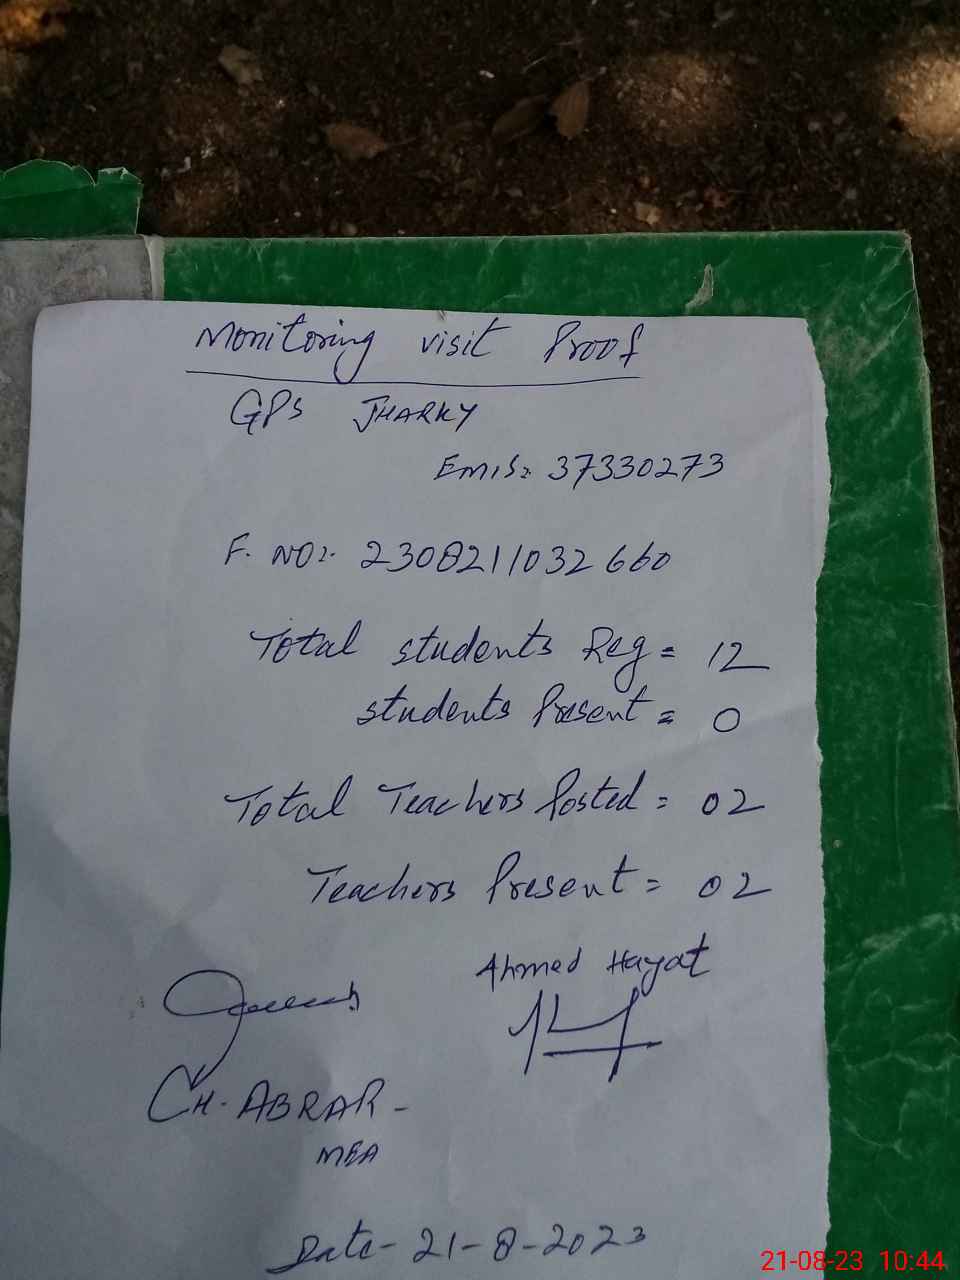 Monitoring visit Proof
GPS JHARKY
Emis: 37330273
F. NO:. 2308211032660
Total students Reg = 12
students Present = 0
Total Teachers Posted = 02
Teachers Present = 02
Ahmed Hayat
CH. ABRAR -
MEA
Date - 21-8-2023
21-08-23 10:44